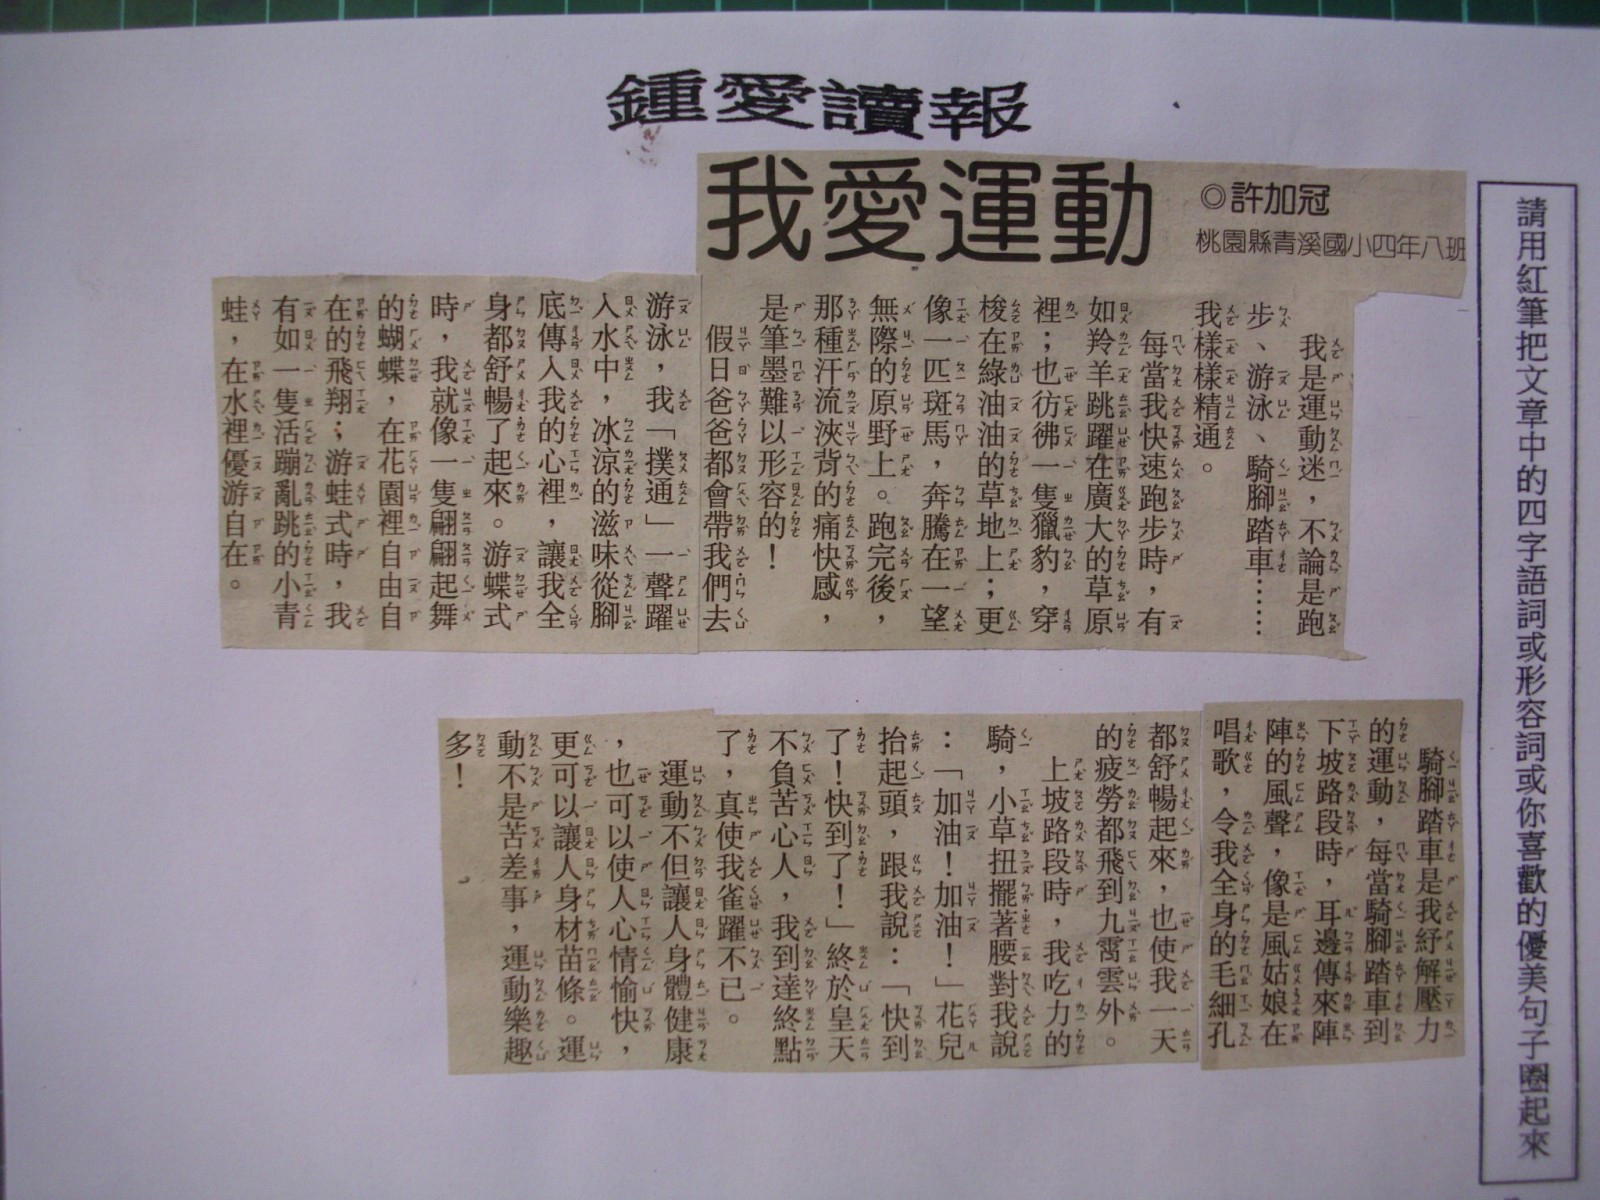 鍾愛讀報
我愛運動
◎許加冠
桃園縣青溪國小四年八班
請用紅筆把文章中的四字語詞或形容詞或你喜歡的優美句子圈起來
我是運動迷，不論是跑
步、游泳、騎腳踏車……
我樣樣精通。
每當我快速跑步時，有
如羚羊跳躍在廣大的草原
裡；也彷彿一隻獵豹，穿
梭在綠油油的草地上；更
像一匹斑馬，奔騰在一望
無際的原野上。跑完後，
那種汗流浹背的痛快感，
是筆墨難以形容的！
假日爸爸都會帶我們去
游泳，我「撲通」一聲躍
入水中，冰涼的滋味從腳
底傳入我的心裡，讓我全
身都舒暢了起來。游蝶式
時，我就像一隻翩翩起舞
的蝴蝶，在花園裡自由自
在的飛翔；游蛙式時，我
有如一隻活蹦亂跳的小青
蛙，在水裡優游自在。
騎腳踏車是我紓解壓力
的運動，每當騎腳踏車到
下坡路段時，耳邊傳來陣
陣的風聲，像是風姑娘在
唱歌，令我全身的毛細孔
都舒暢起來，也使我一天
的疲勞都飛到九霄雲外。
上坡路段時，我吃力的
騎，小草扭擺著腰對我說
：「加油！加油！」花兒
抬起頭，跟我說：「快到
了！快到了！」終於皇天
不負苦心人，我到達終點
了，真使我雀躍不已。
運動不但讓人身體健康
，也可以使人心情愉快，
更可以讓人身材苗條。運
動不是苦差事，運動樂趣
多！